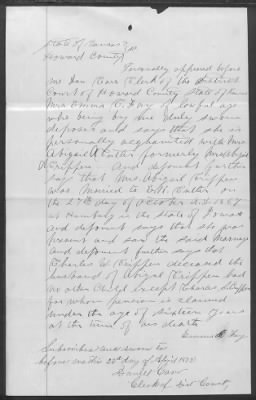 State of Kansas } ss
Howard County }
Personally appeared before
me Clerk of the District
Court of Howard County State of Kansas
Mrs Emma E. Fay of lawful age
who being by me duly sworn
deposes and says that she is
personally acquainted with Mrs
Abigail A Cutler formerly
Crippen And deponent further
says that Mrs Abigail Crippen
was Married to Cutler on
the 27th day of October A.D. 1867
at Hamburg in the State of Iowa
and deponent says that she was
present and saw the said Marriage
and deponent further says that
Charles Crippen deceased the
husband of Abigail Crippen had
no other Child except Crippen
for whom pension is claimed
under the age of Sixteen years
at the time of his death
Emma E Fay
Subscribed and sworn to
before me this day of April 1873
Samuel
Clerk of Dist County